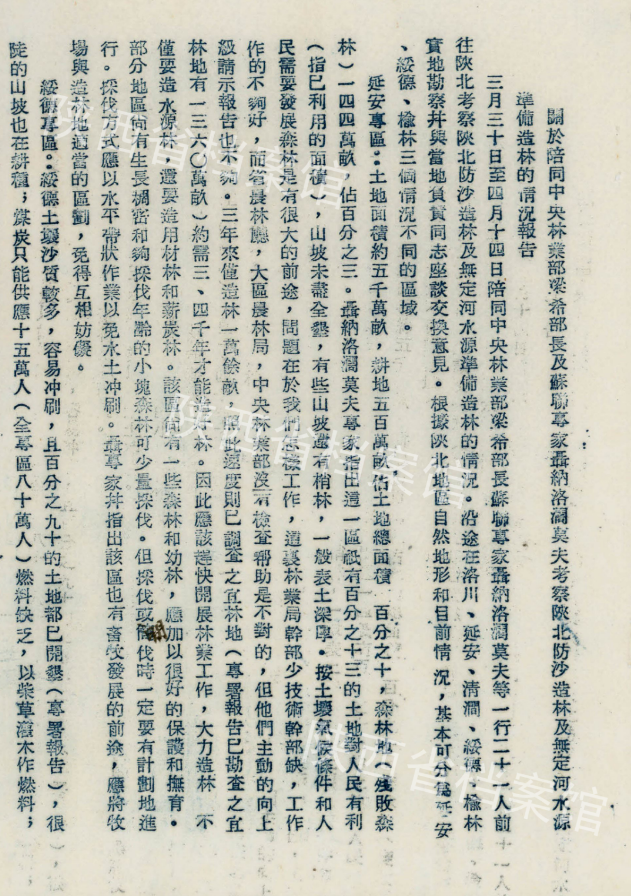 關於陪同中央林業部梁希部長及蘇聯專家聶納洛濶莫夫考察陝北防沙造林及無定河水源
準備造林的情況報告
三月三十日至四月十四日陪同中央林業部梁希部長蘇聯專家聶納洛濶莫夫等一行二十一人前
往陝北考察陝北防沙造林及無定河水源準備造林的情況。沿途在洛川、延安、清澗、綏德、榆林
實地勘察幷與當地負責同志座談交換意見。根據陝北地區自然地形和目前情況，基本可分爲延安
、綏德、榆林三個情況不同的區域。
延安專區：土地面積約五千萬畝，耕地五百萬畝佔土地總面積 百分之十，森林地（殘敗森
林）一四四萬畝 佔百分之三。聶納洛濶莫夫專家指出這一區祇有百分之十三的土地對人民有利
（指已利用的面積），山坡未盡全墾，有些山坡還有梢林，一般表土深厚。按土壤氣候條件和人
民需要發展森林是有很大的前途，問題在於我們怎樣工作，這裏林業局幹部少技術幹部缺，工作
作的不夠好，而省農林廳，大區農林局，中央林業部沒有檢查幫助是不對的，但他們主動的向上
級請示報告也不夠。三年來僅造林一萬餘畝，照此速度則已調查之宜林地（專署報告已勘查之宜
林地有一三六〇萬畝）約需三、四千年才能造好林。因此應該趕快開展林業工作，大力造林 不
僅要造水源林 還要造用材林和薪炭林。該區尙有一些森林和幼林，應加以很好的保護和撫育。
部分地區尙有生長稠密和夠採伐年齡的小塊森林可少量採伐。但採伐或間伐時一定要有計劃地進
行。採伐方式應以水平帶狀作業以免水土冲刷。聶專家幷指出該區也有畜牧發展的前途，應將牧
場與造林地適當的區劃，免得互相妨礙。
綏德專區。綏德土壤沙質較多，容易冲刷，且百分之九十的土地都已開墾（專署報告），很
陡的山坡也在耕種；煤炭只能供應十五萬人（全專區八十萬人）燃料缺乏，以柴草灌木作燃料；
陝西省档案馆
陝西省档案馆
陝西省档案馆